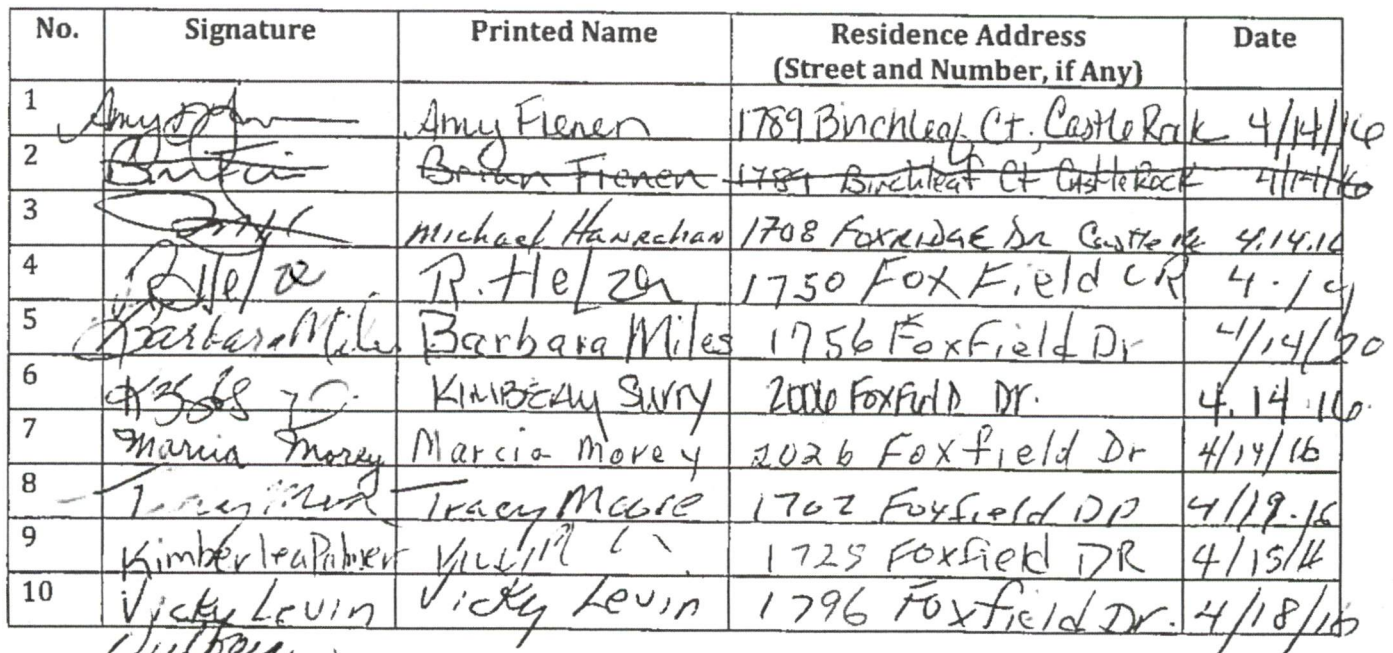 No. Signature Printed Name Residence Address Date
(Street and Number, if Any)
1 Amy Fienen 1789 Birchleaf Ct, Castle Rock 4/14/16
2 Brian Fienen 1789 Birchleaf Ct Castle Rock 4/14/16
3 Michael Hanrahan 1708 FOXRIDGE DR Castle Rk 4.14.16
4 R. Helzer 1750 Fox Field CR 4.14
5 Barbara Miles Barbara Miles 1756 Foxfield Dr 4/14/20
6 KIMBERLY SURRY 2006 FOXFIELD Dr. 4.14.16
7 Marcia Morey Marcia Morey 2026 Foxfield Dr 4/14/16
8 Tracy Moore 1702 Foxfield DR 4/19.16
9 Kimberlea Palmer 1725 Foxfield DR 4/15/16
10 Vicky Levin Vicky Levin 1796 Foxfield Dr. 4/18/16